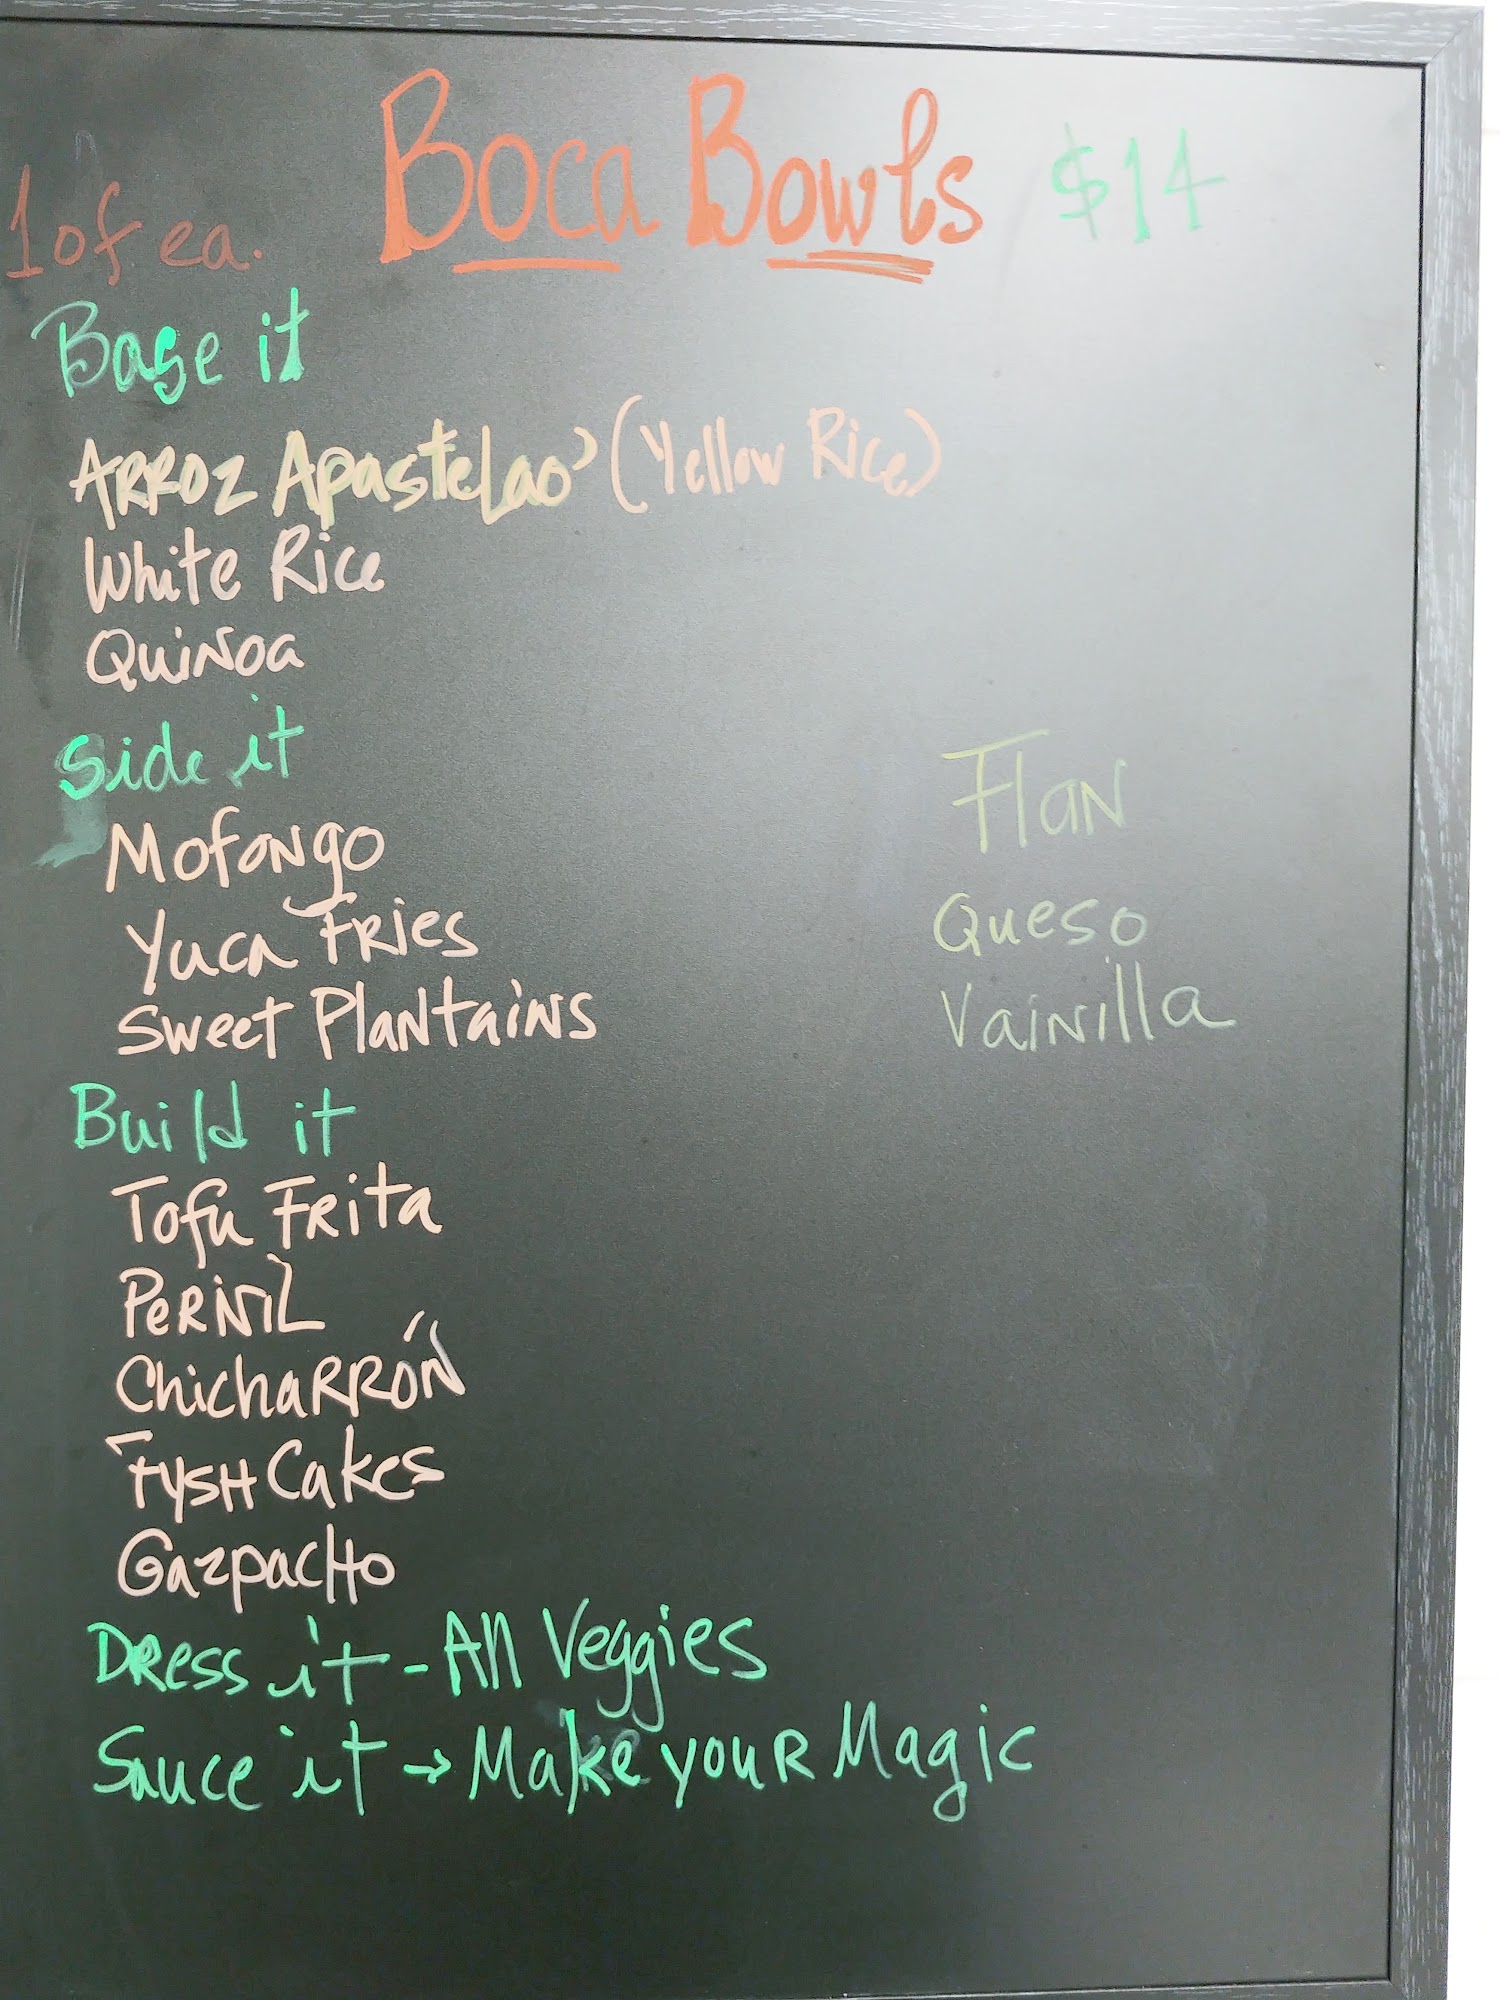 Boca Bowls $14
1 of ea.
Base it
ARROZ Apastelao' (Yellow Rice)
White Rice
Quinoa
Side it
Mofongo
Yuca Fries
Sweet Plantains
Build it
Tofu Frita
PERNIL
ChichaRRÓN
FYSH Cakes
GazpacHo
Dress it - All Veggies
Sauce it → Make youR Magic
Flan
Queso
Vainilla